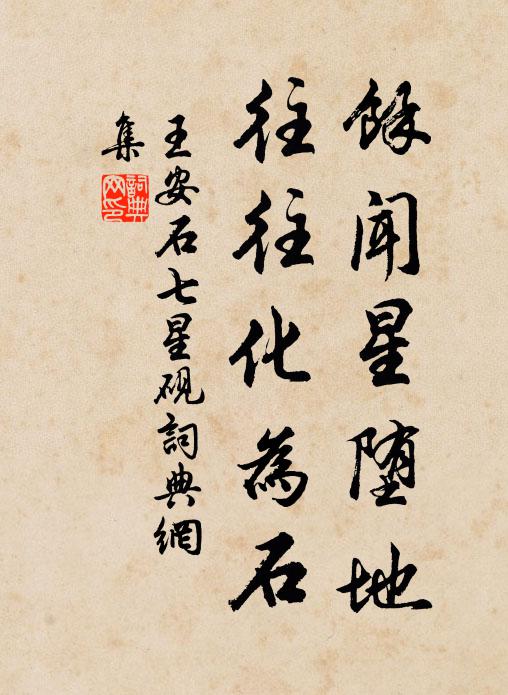 餘聞星堕地
往往化為石
王安石七星硯詞典網
集
詞典
网印